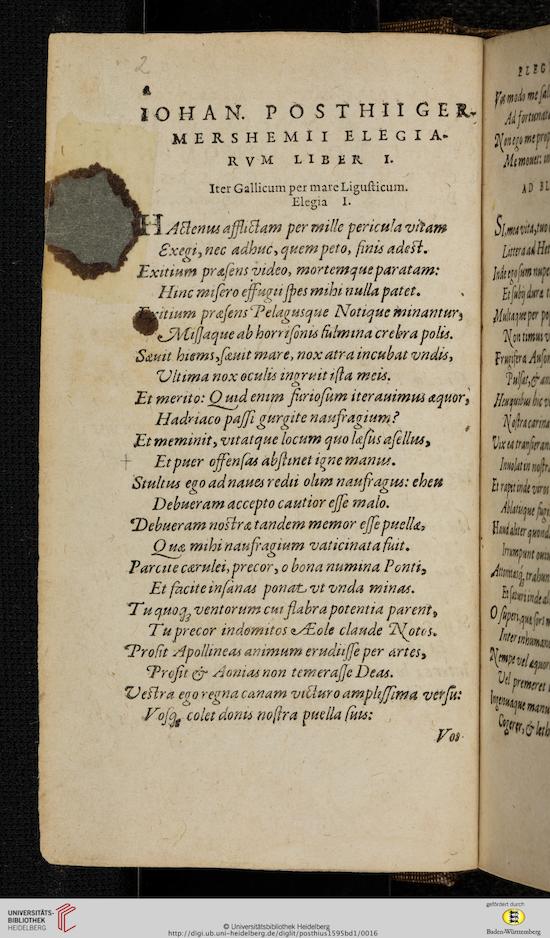 2
IOHAN. POSTHII GER-
MERSHEMII ELEGIA-
RVM LIBER I.
Iter Gallicum per mare Ligusticum.
Elegia I.
HActenus afflictam per mille pericula vitam
Exegi, nec adhuc, quem peto, finis adest.
Exitium præsens video, mortemque paratam:
Hinc misero effugii spes mihi nulla patet.
Exitium præsens Pelagusque Notique minantur,
Missaque ab horrisonis fulmina crebra polis.
Sæuit hiems, sæuit mare, nox atra incubat vndis,
Vltima nox oculis ingruit ista meis.
Et merito: Quid enim furiosum iterauimus æquor,
Hadriaco passi gurgite naufragium?
Et meminit, vitatque locum quo læsus asellus,
Et puer offensas abstinet igne manus.
Stultus ego ad naues redii olim naufragus: eheu
Debueram accepto cautior esse malo.
Debueram nostræ tandem memor esse puellæ,
Quæ mihi naufragium vaticinata fuit.
Parcite cærulei, precor, o bona numina Ponti,
Et facite insanas ponat vt vnda minas.
Tu quoq; ventorum cui flabra potentia parent,
Tu precor indomitos Æole claude Notos.
Prosit Apollineas animum erudiisse per artes,
Prosit & Aonias non temerasse Deas.
Vestra ego regna canam victuro amplissima versu:
Vosq; colet donis nostra puella suis:
Vos
ELEG
Vos modo me sal
Ad fortunat
Non ego me prop
AD BL
SI, mea vita, tuo
Littera ad Het
Inde ego sum nupe
Et subij dura t
Multaque per po
Non timui v
Frugifera Auson
Pulsat, & an
Heu quibus hic v
Nostra carina
Vix ea transieram
Inuolat in nostr
Et rapit inde viros
Ablatisque fug
Haud aliter quond
Irrumpunt oui
Attonitasq; trahun
O superi, quæ sors
Inter inhuman
Nempe vel æquor
Vel premeret
Ingenuaque manu
Cogerer, & leth
UNIVERSITÄTS-
BIBLIOTHEK
HEIDELBERG
© Universitätsbibliothek Heidelberg
http://digi.ub.uni-heidelberg.de/diglit/posthius1595bd1/0016
gefördert durch
Baden-Württemberg